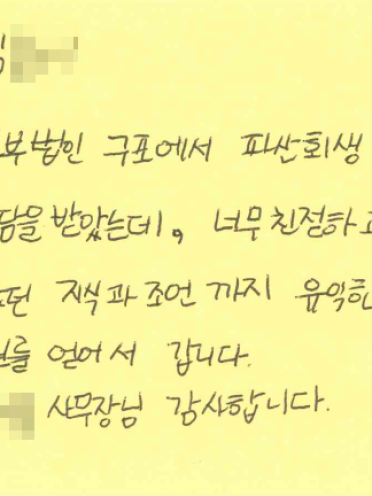 부법인 구포에서 파산회생
담을 받았는데, 너무 친정하고
지식과 조언 까지 유익한
를 얻어서 갑니다.
사무장님 감사합니다.